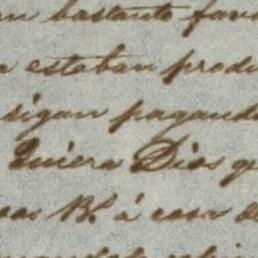 n bastante favo
a estaban produ
sigan pagando
Quiera Dios q
sas B.s á casa de